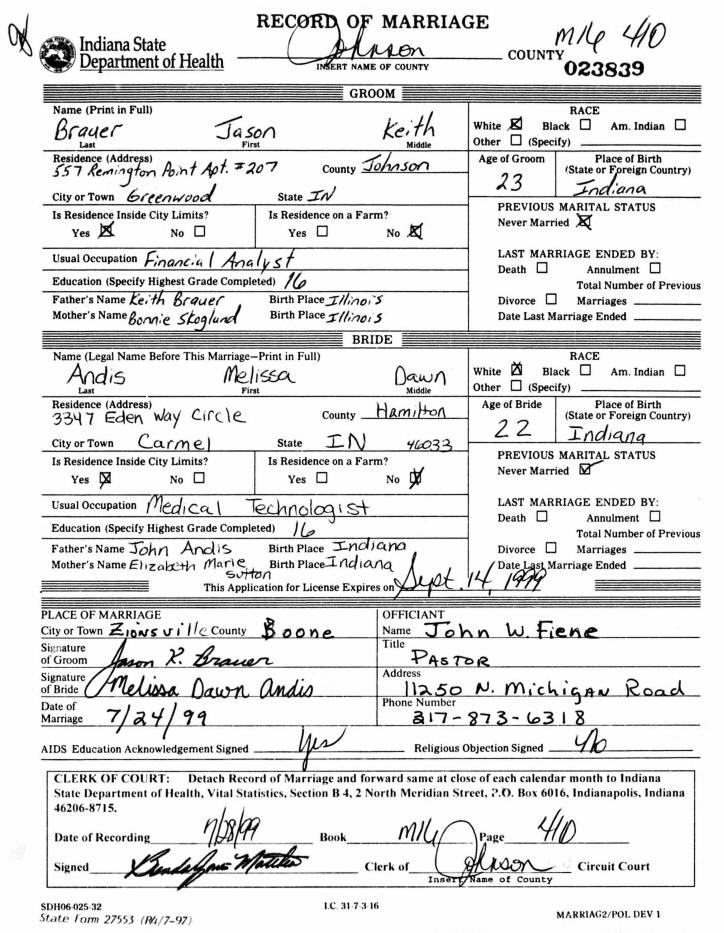 RECORD OF MARRIAGE
Indiana State
Department of Health
Johnson
INSERT NAME OF COUNTY
COUNTY
M16 410
023839
GROOM
Name (Print in Full)
Brauer Jason Keith
Last First Middle
RACE
White ☒ Black ☐ Am. Indian ☐
Other ☐ (Specify)
Residence (Address)
557 Remington Point Apt. #207 County Johnson
City or Town Greenwood State IN
Age of Groom
23
Place of Birth
(State or Foreign Country)
Indiana
Is Residence Inside City Limits?
Yes ☒ No ☐
Is Residence on a Farm?
Yes ☐ No ☒
PREVIOUS MARITAL STATUS
Never Married ☒
Usual Occupation Financial Analyst
Education (Specify Highest Grade Completed) 16
Father's Name Keith Brauer Birth Place Illinois
Mother's Name Bonnie Skoglund Birth Place Illinois
LAST MARRIAGE ENDED BY:
Death ☐ Annulment ☐
Total Number of Previous
Divorce ☐ Marriages
Date Last Marriage Ended
BRIDE
Name (Legal Name Before This Marriage—Print in Full)
Andis Melissa Dawn
Last First Middle
RACE
White ☒ Black ☐ Am. Indian ☐
Other ☐ (Specify)
Residence (Address)
3347 Eden Way Circle County Hamilton
City or Town Carmel State IN 46033
Age of Bride
22
Place of Birth
(State or Foreign Country)
Indiana
Is Residence Inside City Limits?
Yes ☒ No ☐
Is Residence on a Farm?
Yes ☐ No ☒
PREVIOUS MARITAL STATUS
Never Married ☑
Usual Occupation Medical Technologist
Education (Specify Highest Grade Completed) 16
Father's Name John Andis Birth Place Indiana
Mother's Name Elizabeth Marie Sutton Birth Place Indiana
LAST MARRIAGE ENDED BY:
Death ☐ Annulment ☐
Total Number of Previous
Divorce ☐ Marriages
Date Last Marriage Ended
This Application for License Expires on Sept. 14, 1999
PLACE OF MARRIAGE
City or Town Zionsville County Boone
Signature
of Groom Jason K. Brauer
Signature
of Bride Melissa Dawn Andis
Date of
Marriage 7/24/99
OFFICIANT
Name John W. Fiene
Title
PASTOR
Address
11250 N. Michigan Road
Phone Number
317-873-6318
AIDS Education Acknowledgement Signed Yes Religious Objection Signed No
CLERK OF COURT: Detach Record of Marriage and forward same at close of each calendar month to Indiana
State Department of Health, Vital Statistics, Section B 4, 2 North Meridian Street, P.O. Box 6016, Indianapolis, Indiana
46206-8715.
Date of Recording 7/28/99 Book M16 Page 410
Signed Clerk of Johnson Circuit Court
Insert Name of County
SDH06-025-32
State Form 27553 (R4/7-97)
I.C. 31-7-3-16
MARRIAG2/POL DEV 1